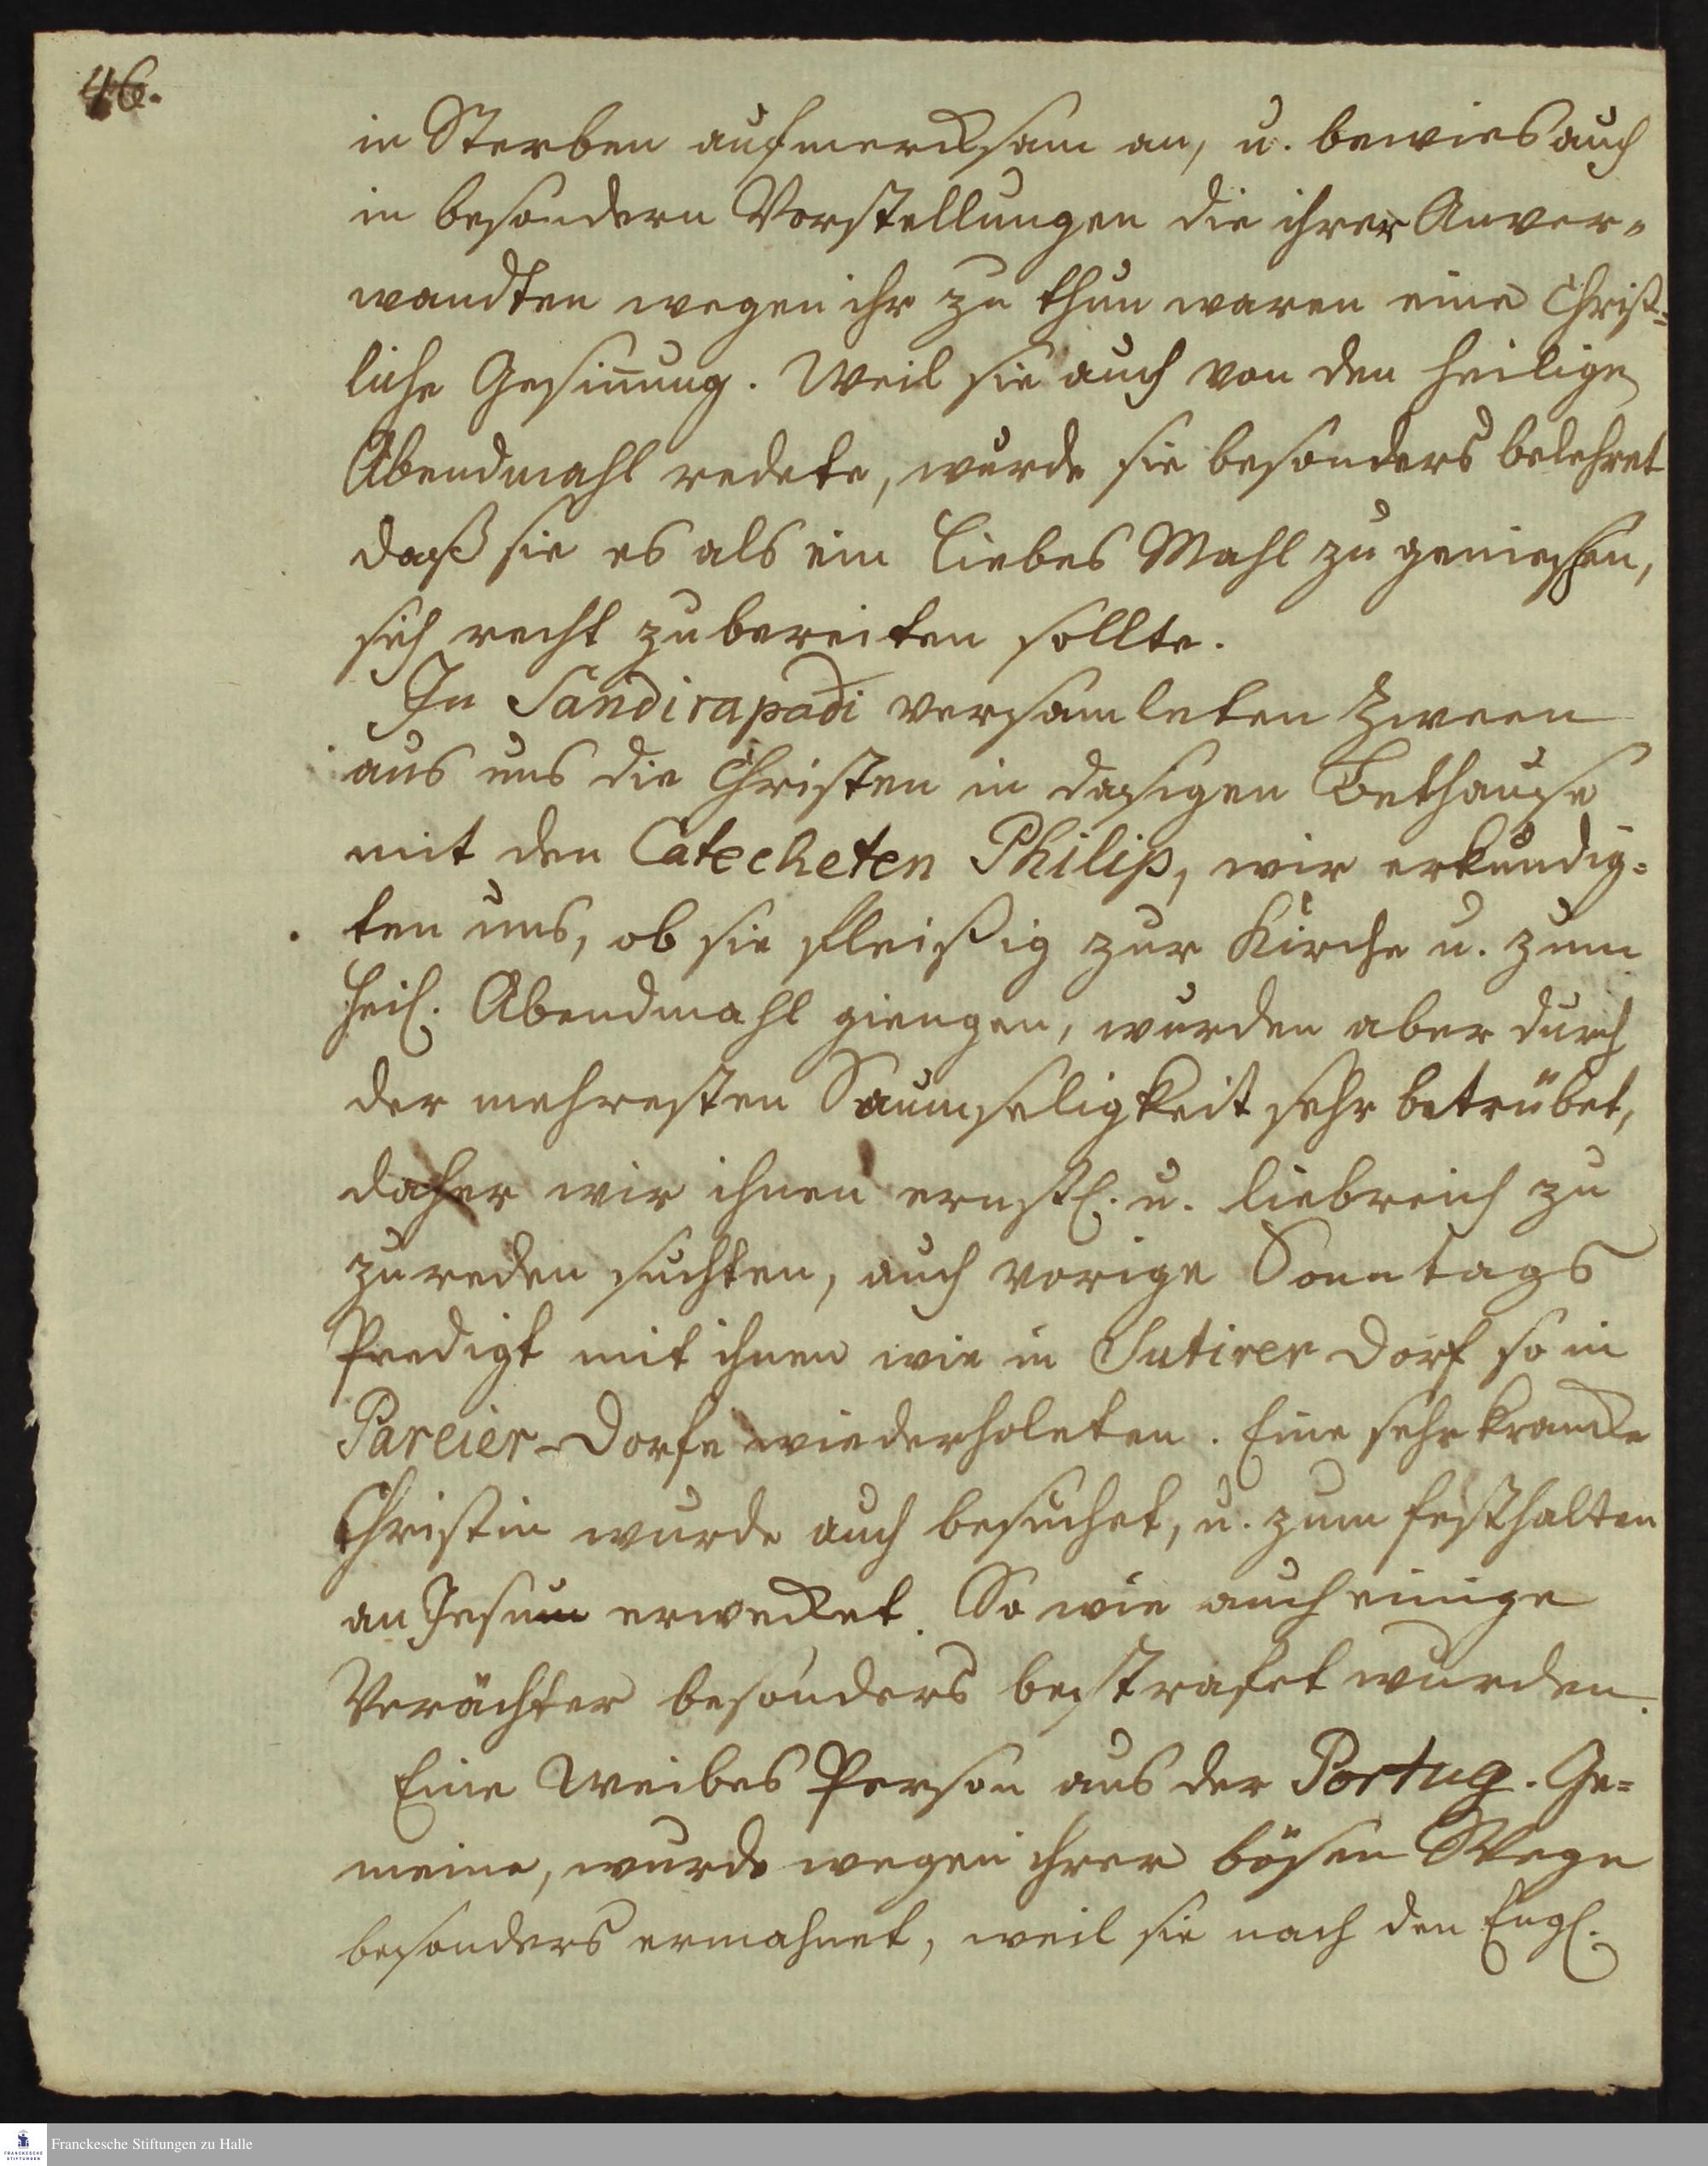 46.
in Sterben aufmercksam an, u. bewies auch
in besondern Vorstellungen die ihrer Anver-
wandten wegen ihr zu thun waren eine Christ=
liche Gesinnung. Weil sie auch von den heilige
Abendmahl redete, wurde sie besonders belehret
daß sie es als ein Liebes Mahl zu geniessen,
sich recht zubereiten sollte.
In Sandirapadi versamleten Zween
aus uns die Christen in dasigen Bethause
mit den Catecheten Philip, wir erkundig=
ten uns, ob sie fleißig zur Kirche u. zum
heil. Abendmahl giengen, wurden aber durch
der mehresten Saumseligkeit sehr betrübet,
daher wir ihnen ernstl. u. liebreich zu
zureden suchten, auch vorige Sonntags
Predigt mit ihnen wie in Sutirer Dorf so in
Pareier-Dorfe wiederholeten. Eine sehr krancke
Christin wurde auch besuchet, u. zum festhalten
an Jesum erwecket. So wie auch einige
Verächter besonders bestrafet wurden.
Eine Weibes Person aus der Portug. Ge=
meine, wurde wegen ihrer bösen Wege
besonders ermahnet, weil sie nach den Engl.
Franckesche Stiftungen zu Halle